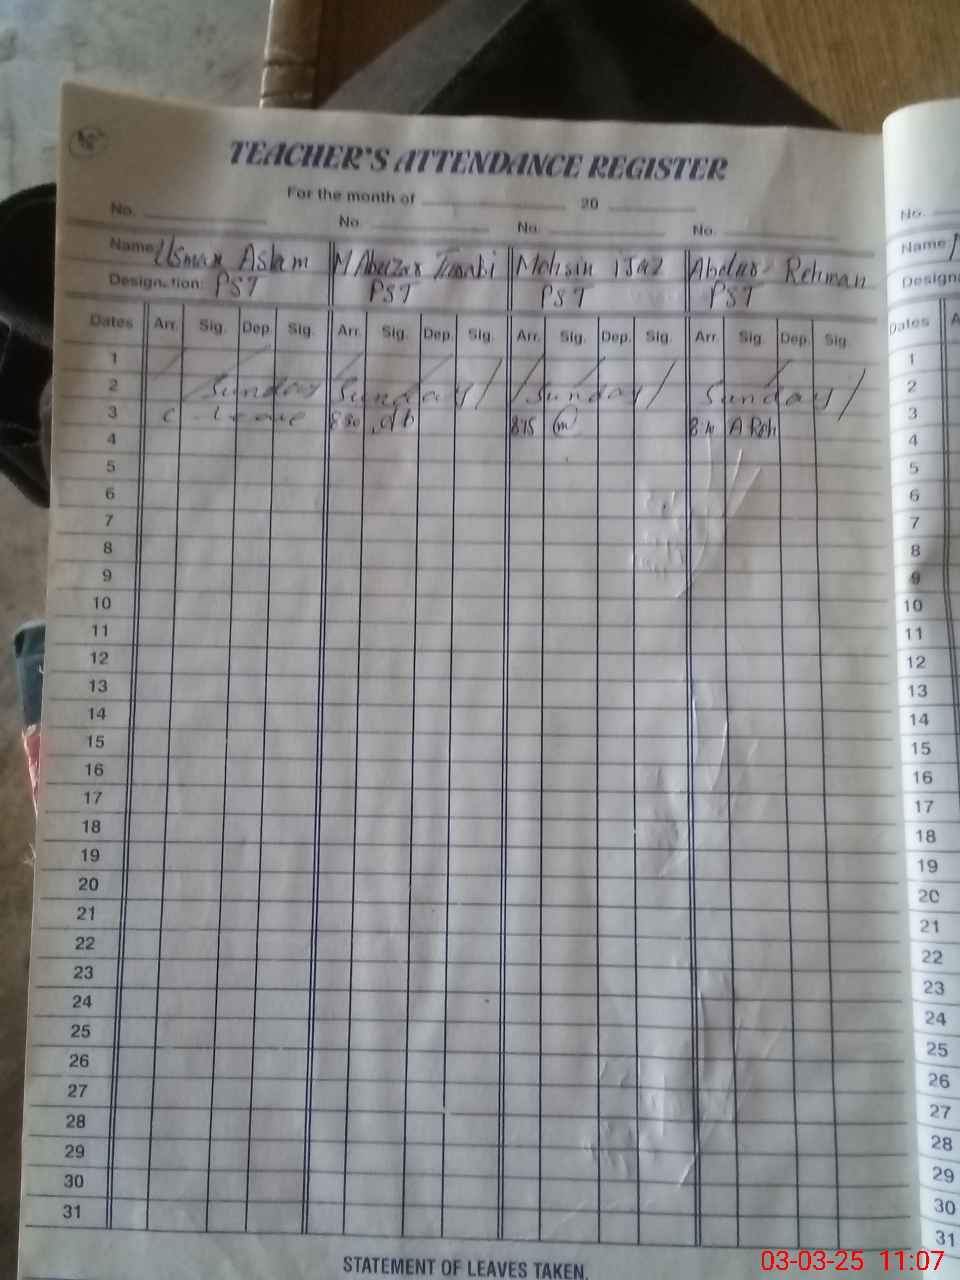 TEACHER'S ATTENDANCE REGISTER
For the month of 20
No. No. No. No. No.
Name Usman Aslam M Abuzar Mohsin ijaz Abdur Rehman Name
Designation: PST PST PST PST Designa
Dates Arr. Sig. Dep. Sig. Arr. Sig. Dep. Sig. Arr. Sig. Dep. Sig. Arr. Sig. Dep. Sig. Dates A
1 1
2 Sunday Sunday Sunday Sunday 2
3 C - leave 8 30 815 m 8:10 A Reh 3
4 4
5 5
6 6
7 7
8 8
9 9
10 10
11 11
12 12
13 13
14 14
15 15
16 16
17 17
18 18
19 19
20 20
21 21
22 22
23 23
24 24
25 25
26 26
27 27
28 28
29 29
30 30
31 31
STATEMENT OF LEAVES TAKEN.
03-03-25 11:07